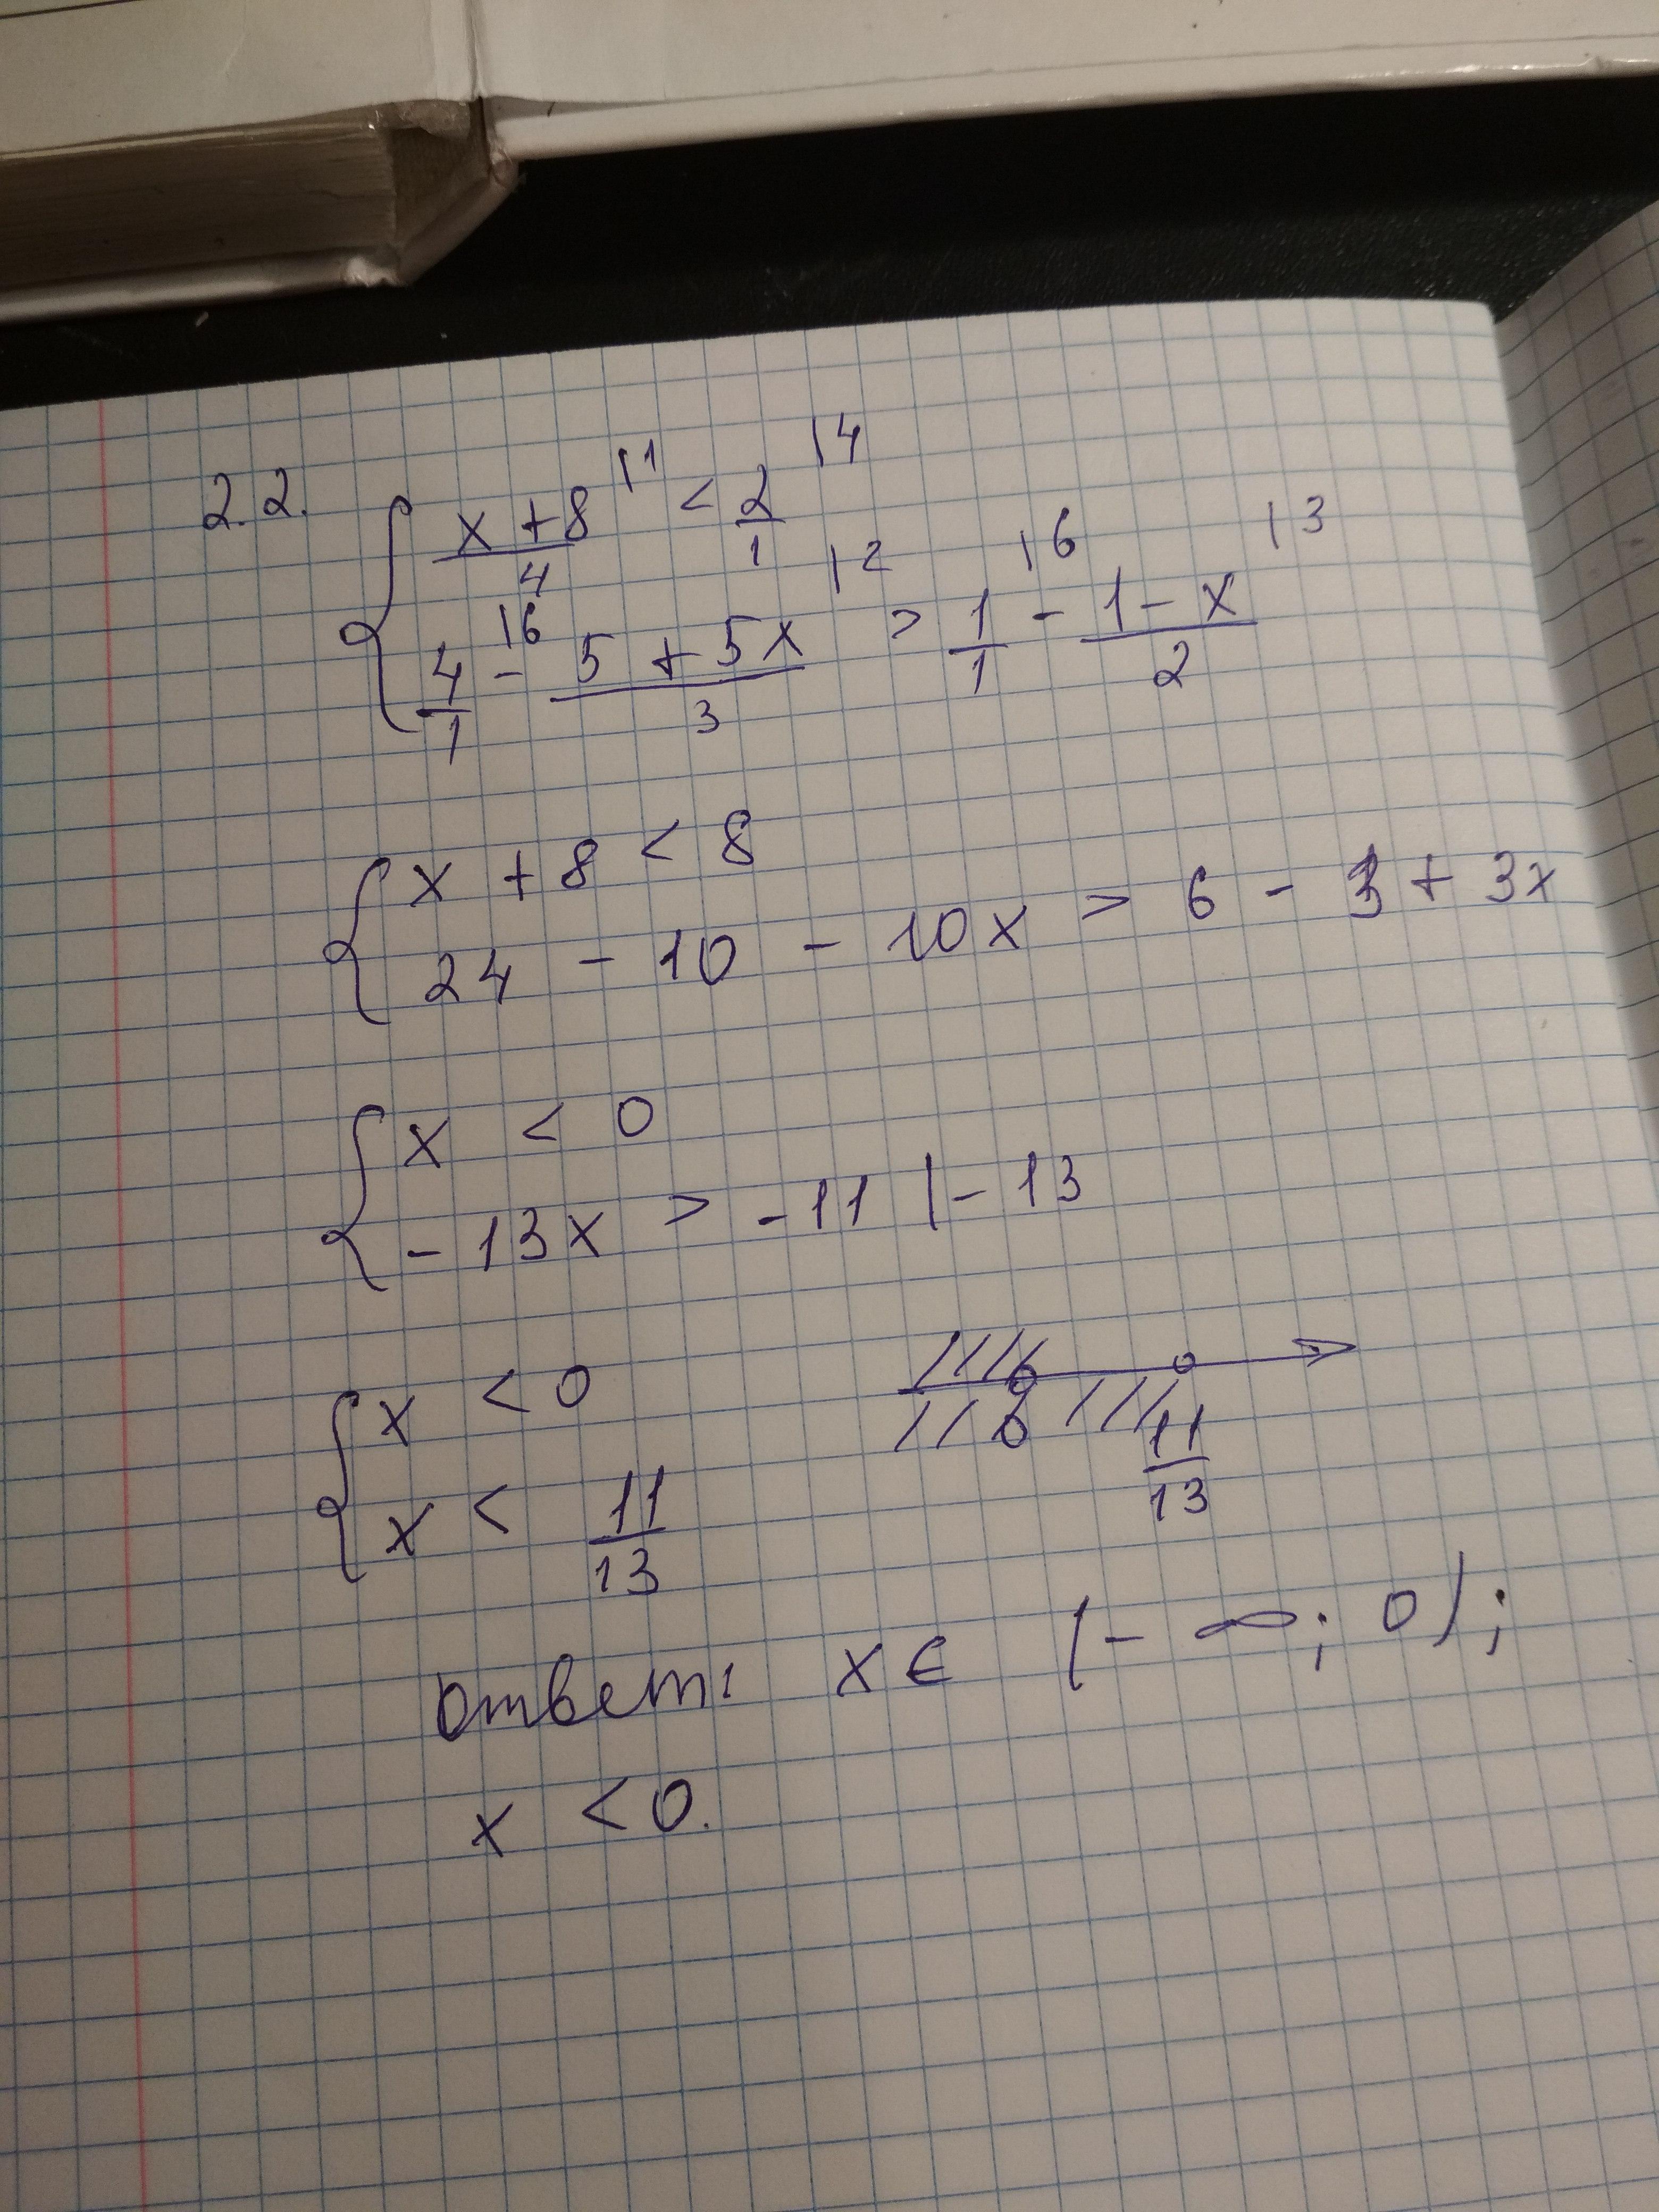 2.2. { (x + 8)/4 |1 < 2/1 |4
4/1 |6 - (5 + 5x)/3 |2 > 1/1 |6 - (1 - x)/2 |3
{ x + 8 < 8
24 - 10 - 10x > 6 - 3 + 3x
{ x < 0
-13x > -11 |-13
{ x < 0
x < 11/13
0 11/13
ответ: x ∈ (-∞; 0);
x < 0.